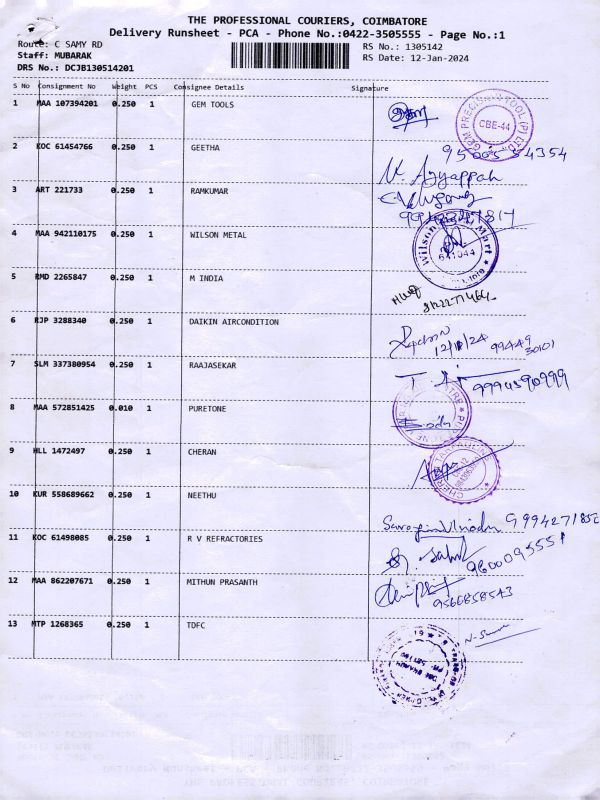 THE PROFESSIONAL COURIERS, COIMBATORE
Delivery Runsheet - PCA - Phone No.:0422-3505555 - Page No.:1
Route: C SAMY RD
Staff: MUBARAK
DRS No.: DCJB130514201
RS No.: 1305142
RS Date: 12-Jan-2024
S No Consignment No Weight PCS Consignee Details Signature
1 MAA 107394201 0.250 1 GEM TOOLS
GEM PRECISION TOOL (P) LTD
CBE-44
2 KOC 61454766 0.250 1 GEETHA
3 ART 221733 0.250 1 RAMKUMAR
4 MAA 942110175 0.250 1 WILSON METAL
Wilson Mart
641044
5 RMD 2265847 0.250 1 M INDIA
6 RJP 3288340 0.250 1 DAIKIN AIRCONDITION
99449
30101
7 SLM 337380954 0.250 1 RAAJASEKAR
9994590999
8 MAA 572851425 0.010 1 PURETONE
9 HLL 1472497 0.250 1 CHERAN
10 KUR 558689662 0.250 1 NEETHU
11 KOC 61498085 0.250 1 R V REFRACTORIES
9600095551
12 MAA 862207671 0.250 1 MITHUN PRASANTH
9566858543
13 MTP 1268365 0.250 1 TDFC